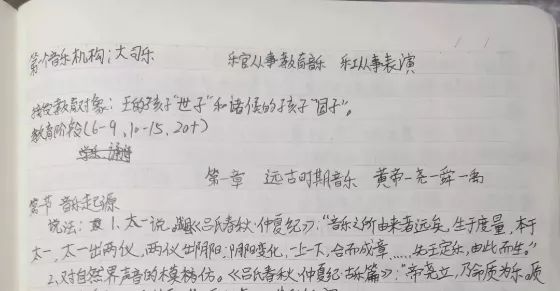 第一个音乐机构：大司乐 乐官从事教育音乐 乐工从事表演
接受教育对象：王的孩子"世子"和诸侯的孩子"国子"。
教育阶龄（6-9，10-15，20+）
第一章 远古时期音乐 黄帝—尧—舜—禹
第一节 音乐起源
说法：1、太一说。《吕氏春秋·仲夏纪》："音乐之所由来者远矣，生于度量，本于
太一，太一出两仪，两仪出阴阳，阴阳变化，一上一下，合而成章……先王定乐，由此而生。"
2、对自然界声音的模仿。《吕氏春秋·仲夏纪·古乐篇》："帝尧立，乃命质为乐。质